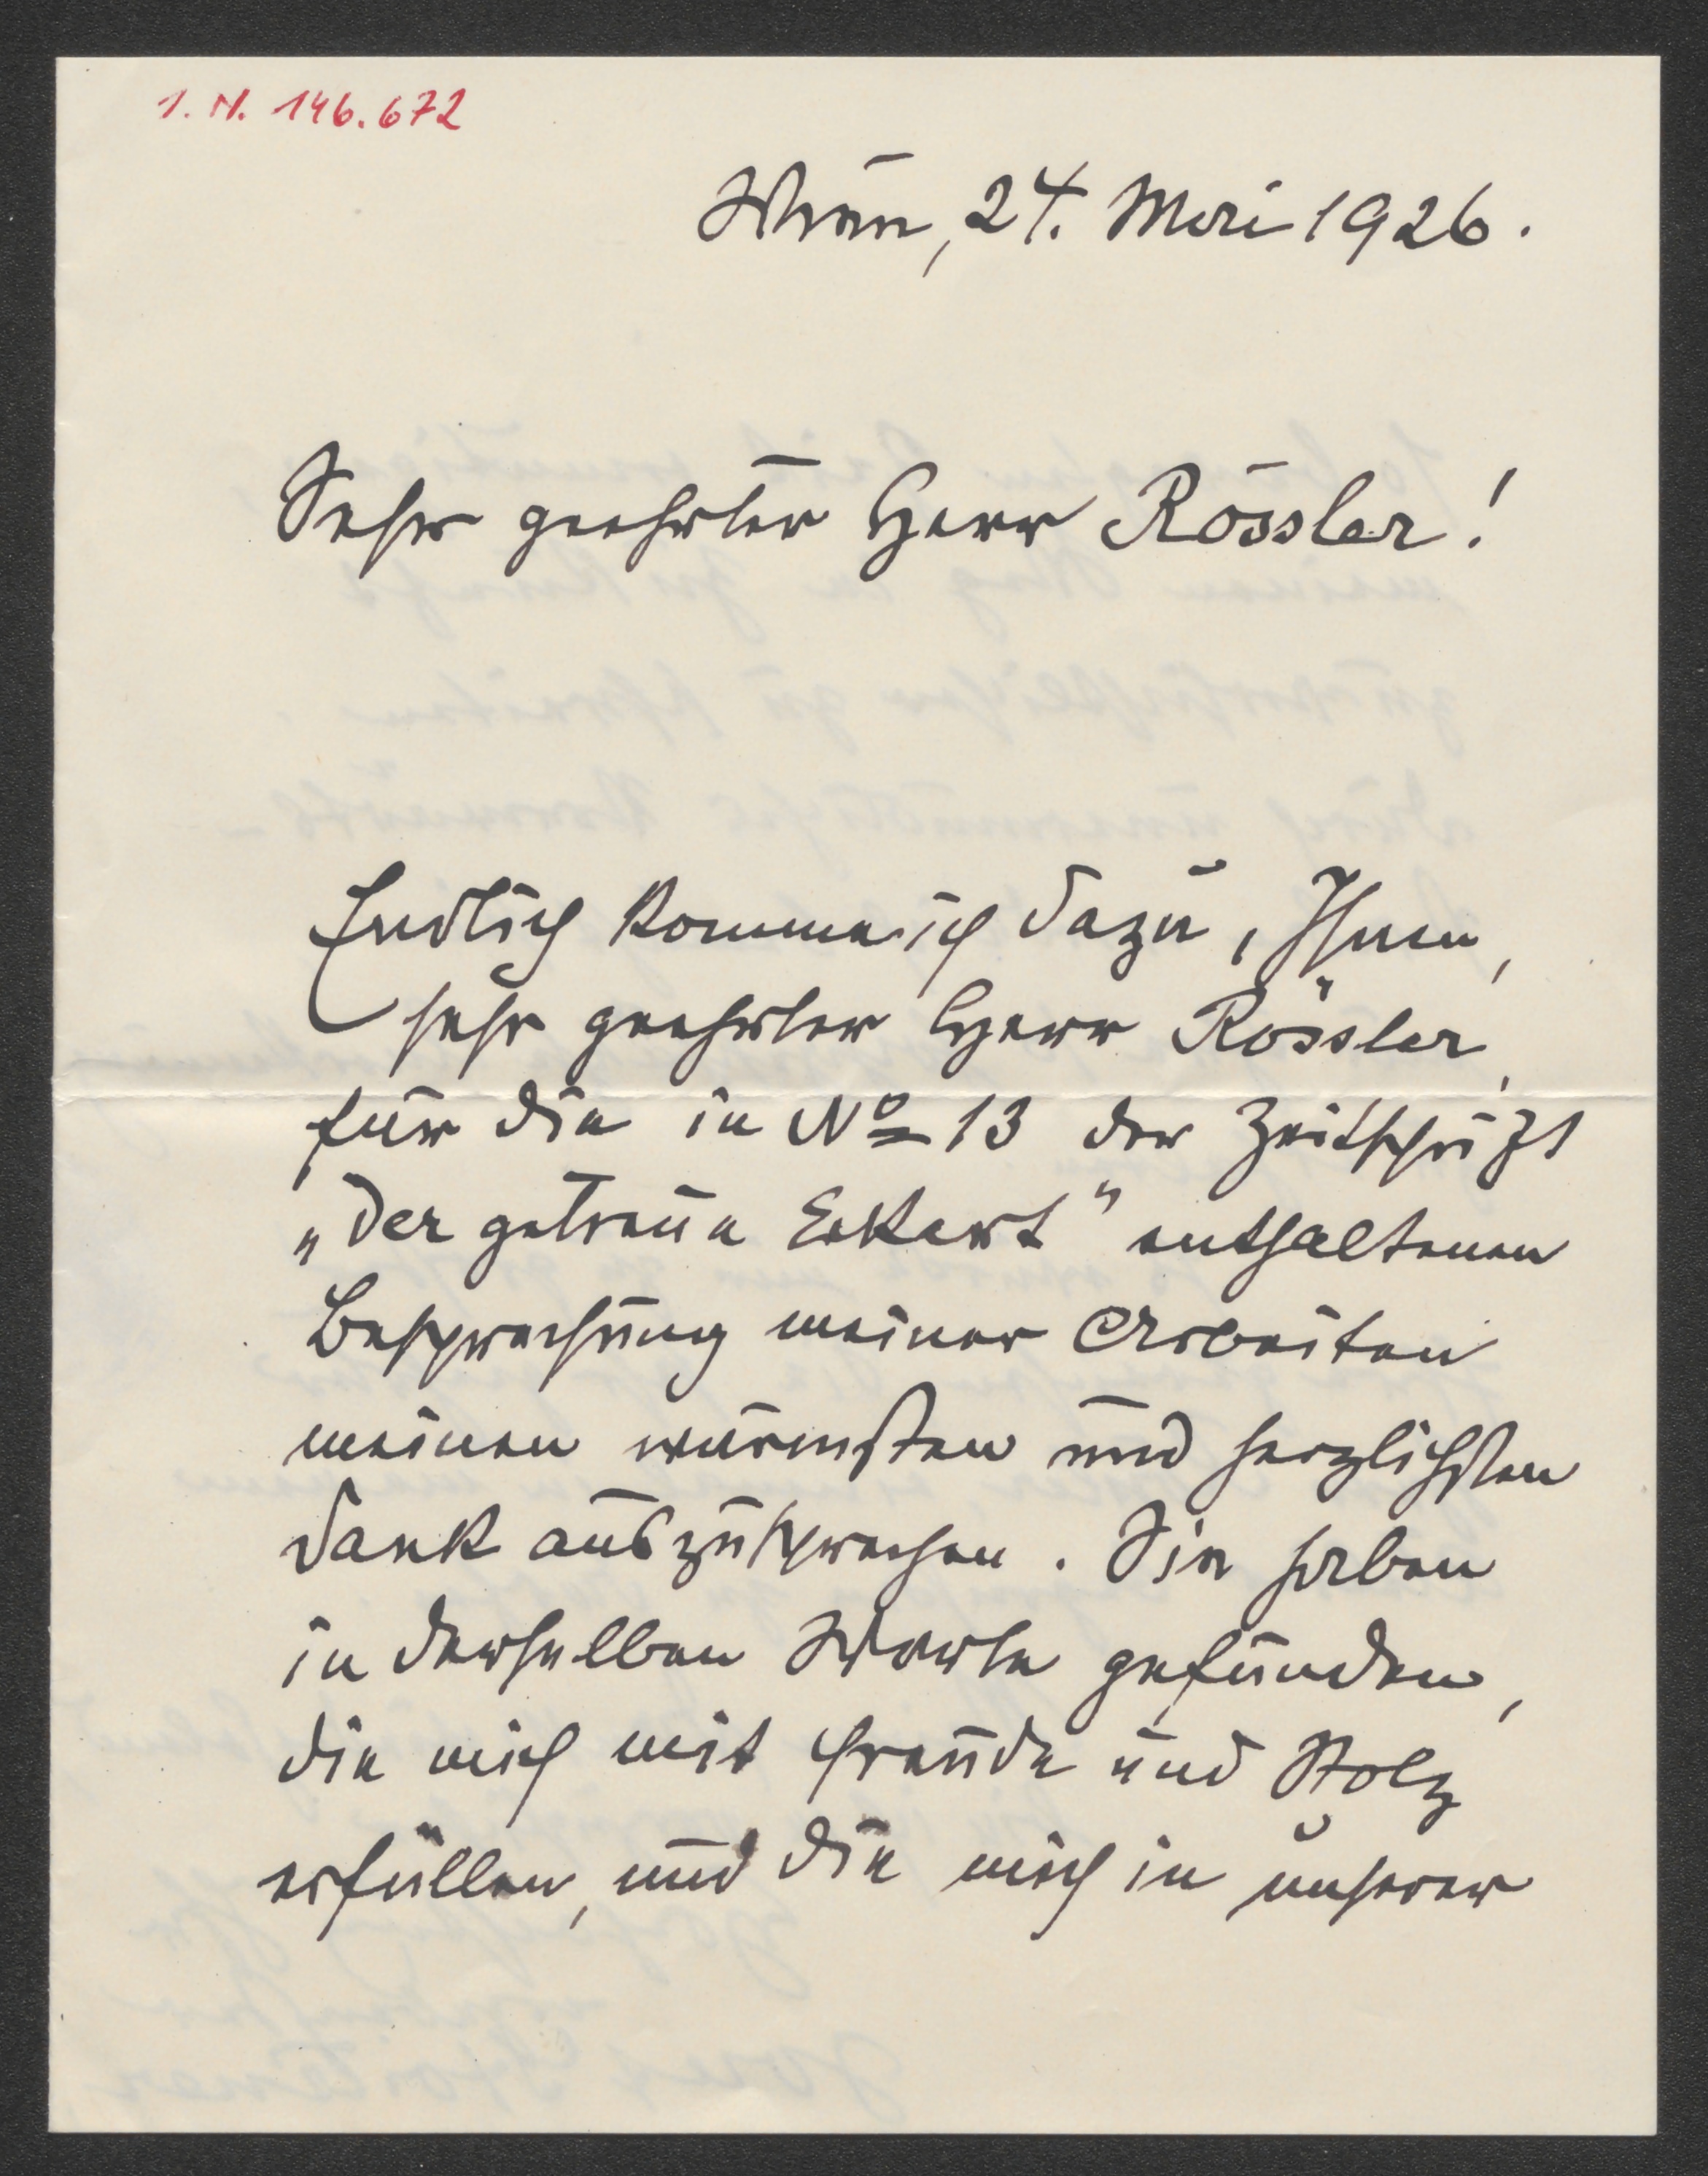 I. N. 146.672
Wien, 24. Mai 1926.
Sehr geehrter Herr Rössler!
Endlich komme ich dazu, Ihnen,
sehr geehrter Herr Rössler,
für die in No 13 der Zeitschrift
„Der getreue Eckart" enthaltenen
Besprechung meiner Arbeiten
meinen wärmsten und herzlichsten
Dank auszusprechen. Sie haben
in derselben Worte gefunden,
die mich mit Freude und Stolz
erfüllen, und die mich in unserer